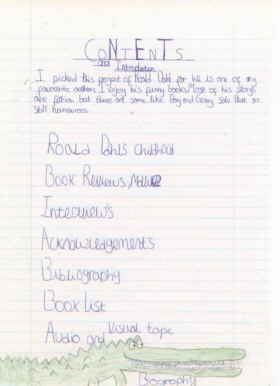 CONTENTS
and Introduction
I picked this project of Roald Dahl for he is one of my
favourite authors. I enjoy his funny books. Most of his storys
are fiction but there are some like Boy and Going Solo that are
still humourous.
Roald Dahls childhood
Book Reviews
Interviews
Acknowledgements
Bibliography
Book list
Audio and Visual tape
Biography